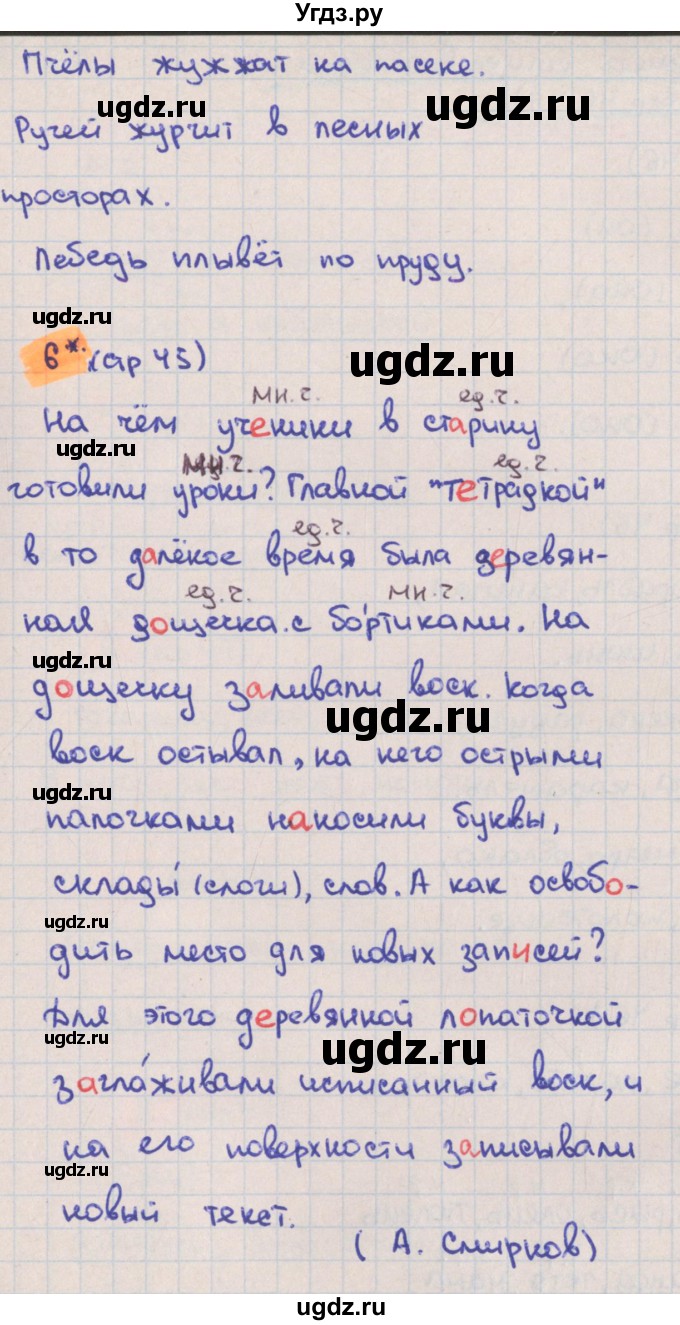 Угдз.ру
Пчёлы жужжат на пасеке.
ugdz.ru ugdz.ru
Ручей журчит в лесных
просторах.
Лебедь плывёт по пруду.
ugdz.ru
6*. (стр 45)
ugdz.ru
мн.ч. ед.ч.
На чём ученики в старину
ugdz.ru
мн.ч. ед.ч.
готовили уроки? Главной "тетрадкой"
ед.ч.
в то далёкое время была деревян-
ед.ч. мн.ч.
ная дощечка с бо́ртиками. На
ugdz.ru
дощечку заливали воск. Когда
ugdz.ru
воск остывал, на него острыми
ugdz.ru
палочками наносили буквы,
склады́ (слоги), слов. А как освобо-
ugdz.ru
дить место для новых записей?
Для этого деревянной лопаточкой
ugdz.ru ugdz.ru
загла́живали исписанный воск, и
на его поверхности записывали
ugdz.ru
новый текст.
( А. Смирнов)
ugdz.ru